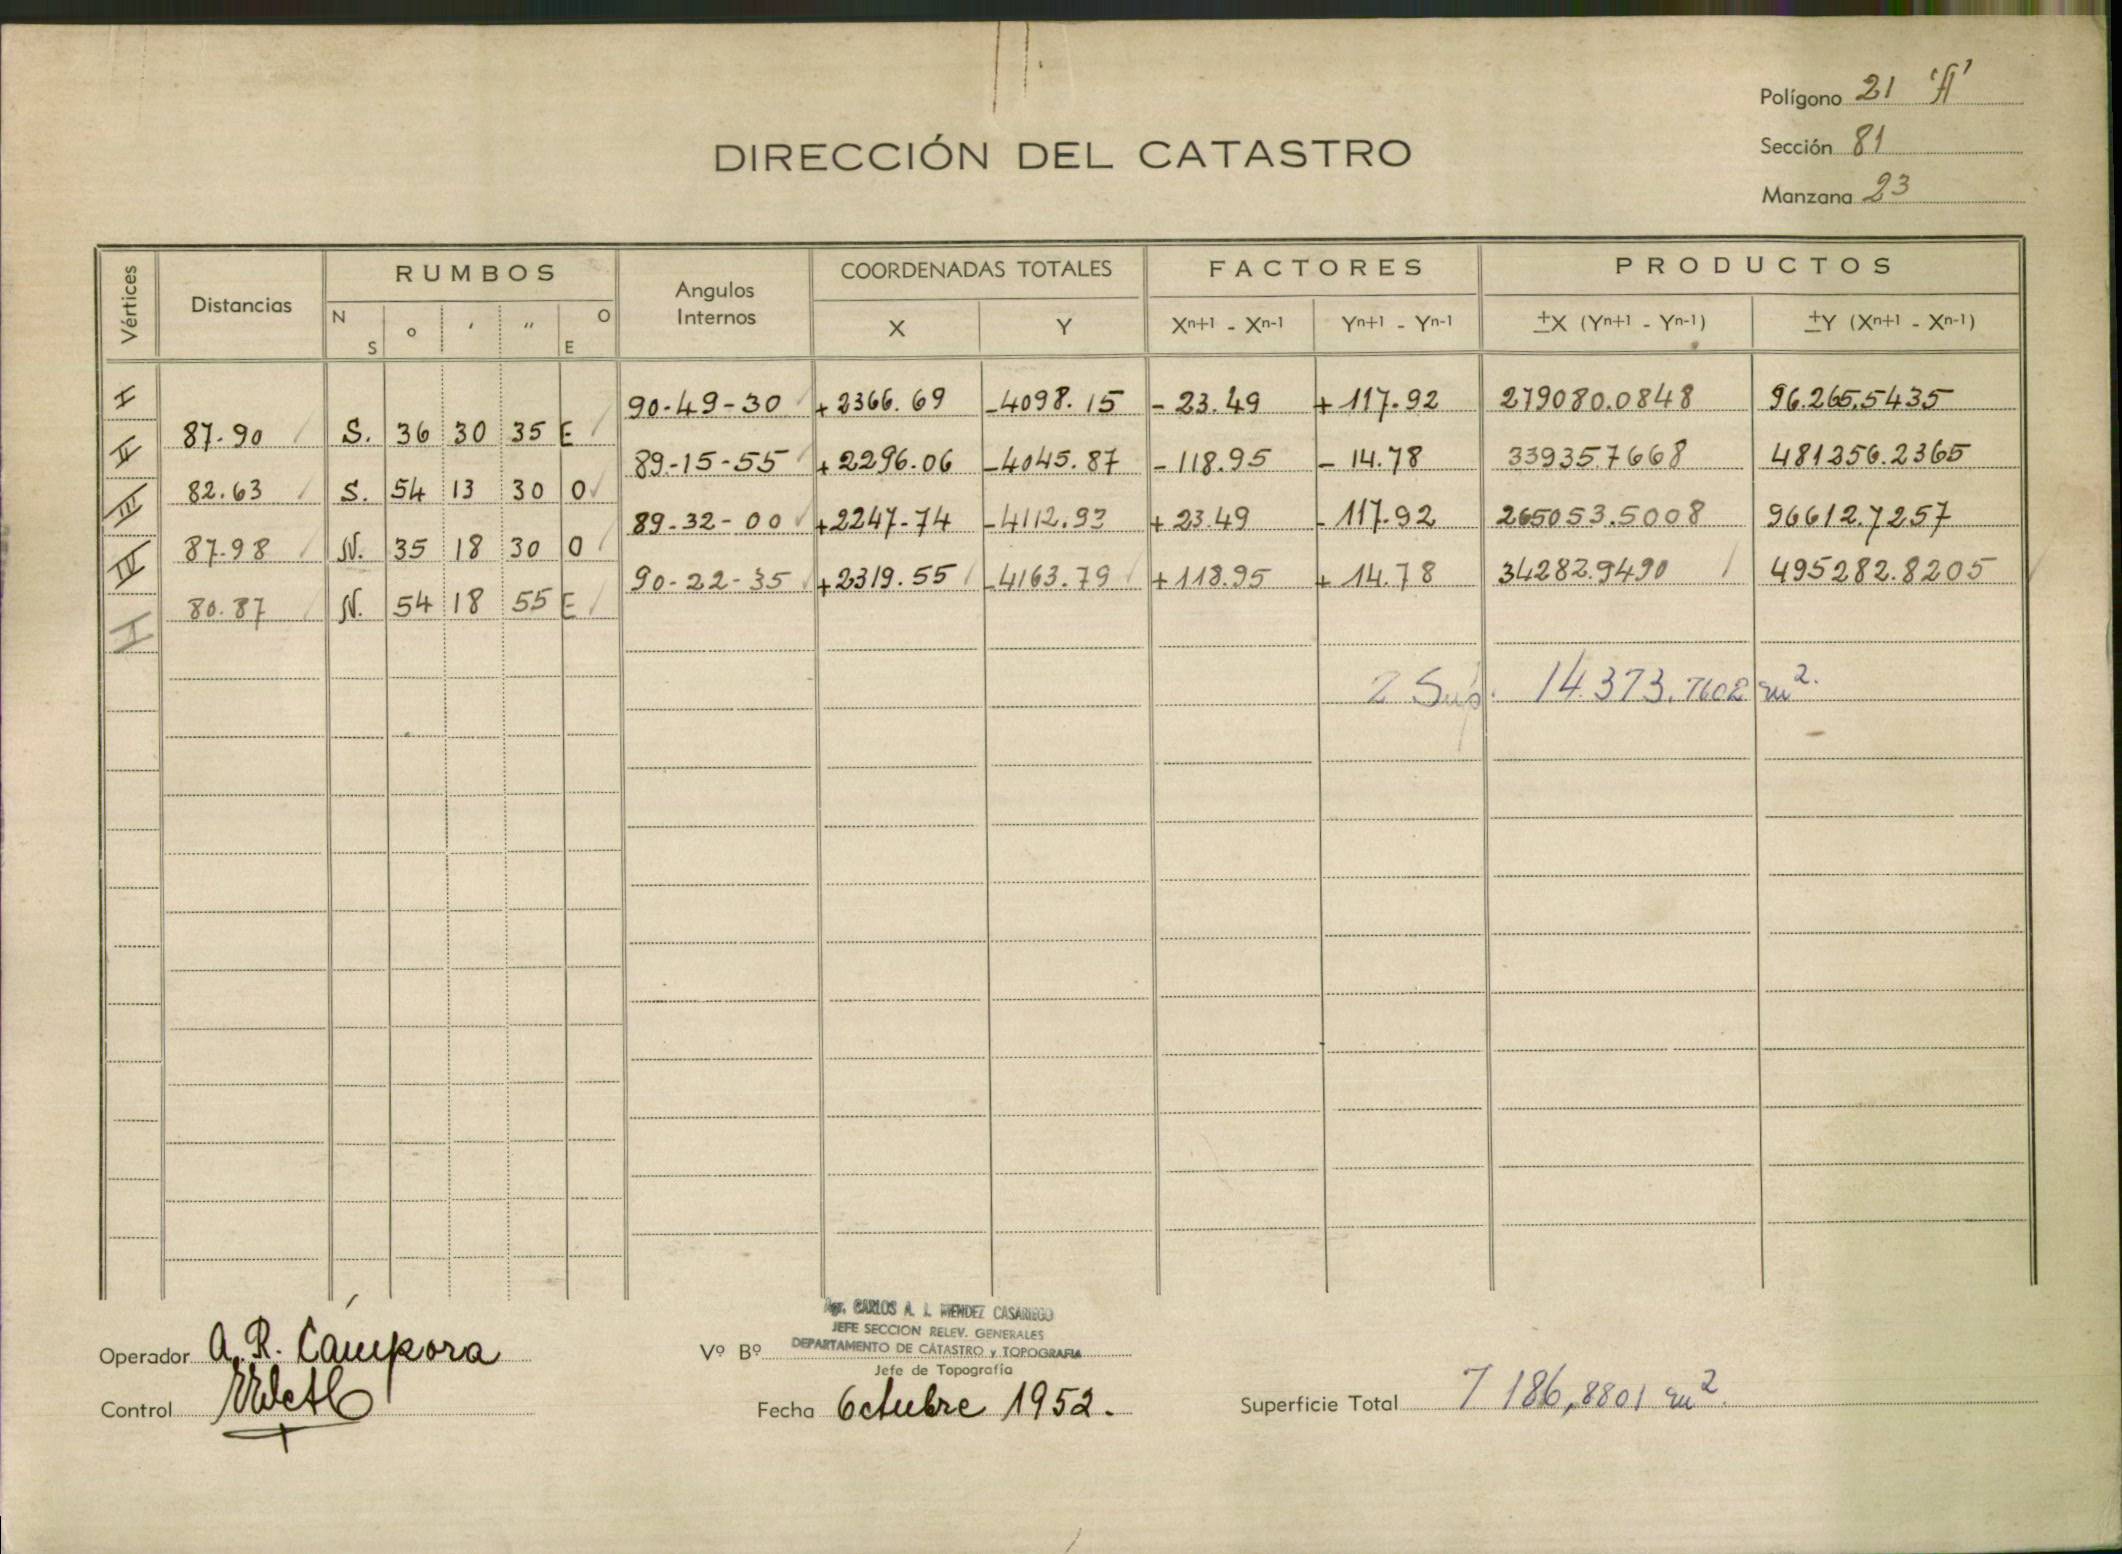 Polígono 21 'A'
DIRECCIÓN DEL CATASTRO
Sección 81
Manzana 23
Vértices Distancias RUMBOS Angulos Internos COORDENADAS TOTALES FACTORES PRODUCTOS
N S o ' '' O E X Y Xn+1 - Xn-1 Yn+1 - Yn-1 ±X (Yn+1 - Yn-1) ±Y (Xn+1 - Xn-1)
I 90-49-30 +2366.69 -4098.15 -23.49 +117.92 279080.0848 96.265.5435
87.90 S. 36 30 35 E
II 89-15-55 +2296.06 -4045.87 -118.95 -14.78 33935.7668 481256.2365
82.63 S. 54 13 30 O
III 89-32-00 +2247-74 -4112.93 +23.49 -117.92 265053.5008 96612.7257
87.98 N. 35 18 30 O
IV 90-22-35 +2319.55 -4163.79 +118.95 +14.78 34282.9490 495282.8205
80.87 N. 54 18 55 E
I
2 Sup. 14.373.7602 m2.
Agr. CARLOS A. J. MENDEZ CASARIEGO
JEFE SECCION RELEV. GENERALES
DEPARTAMENTO DE CATASTRO y TOPOGRAFIA
Operador A. R. Cámpora Vº Bº
Jefe de Topografía
Control Fecha Octubre 1952. Superficie Total 7186,8801 m2.